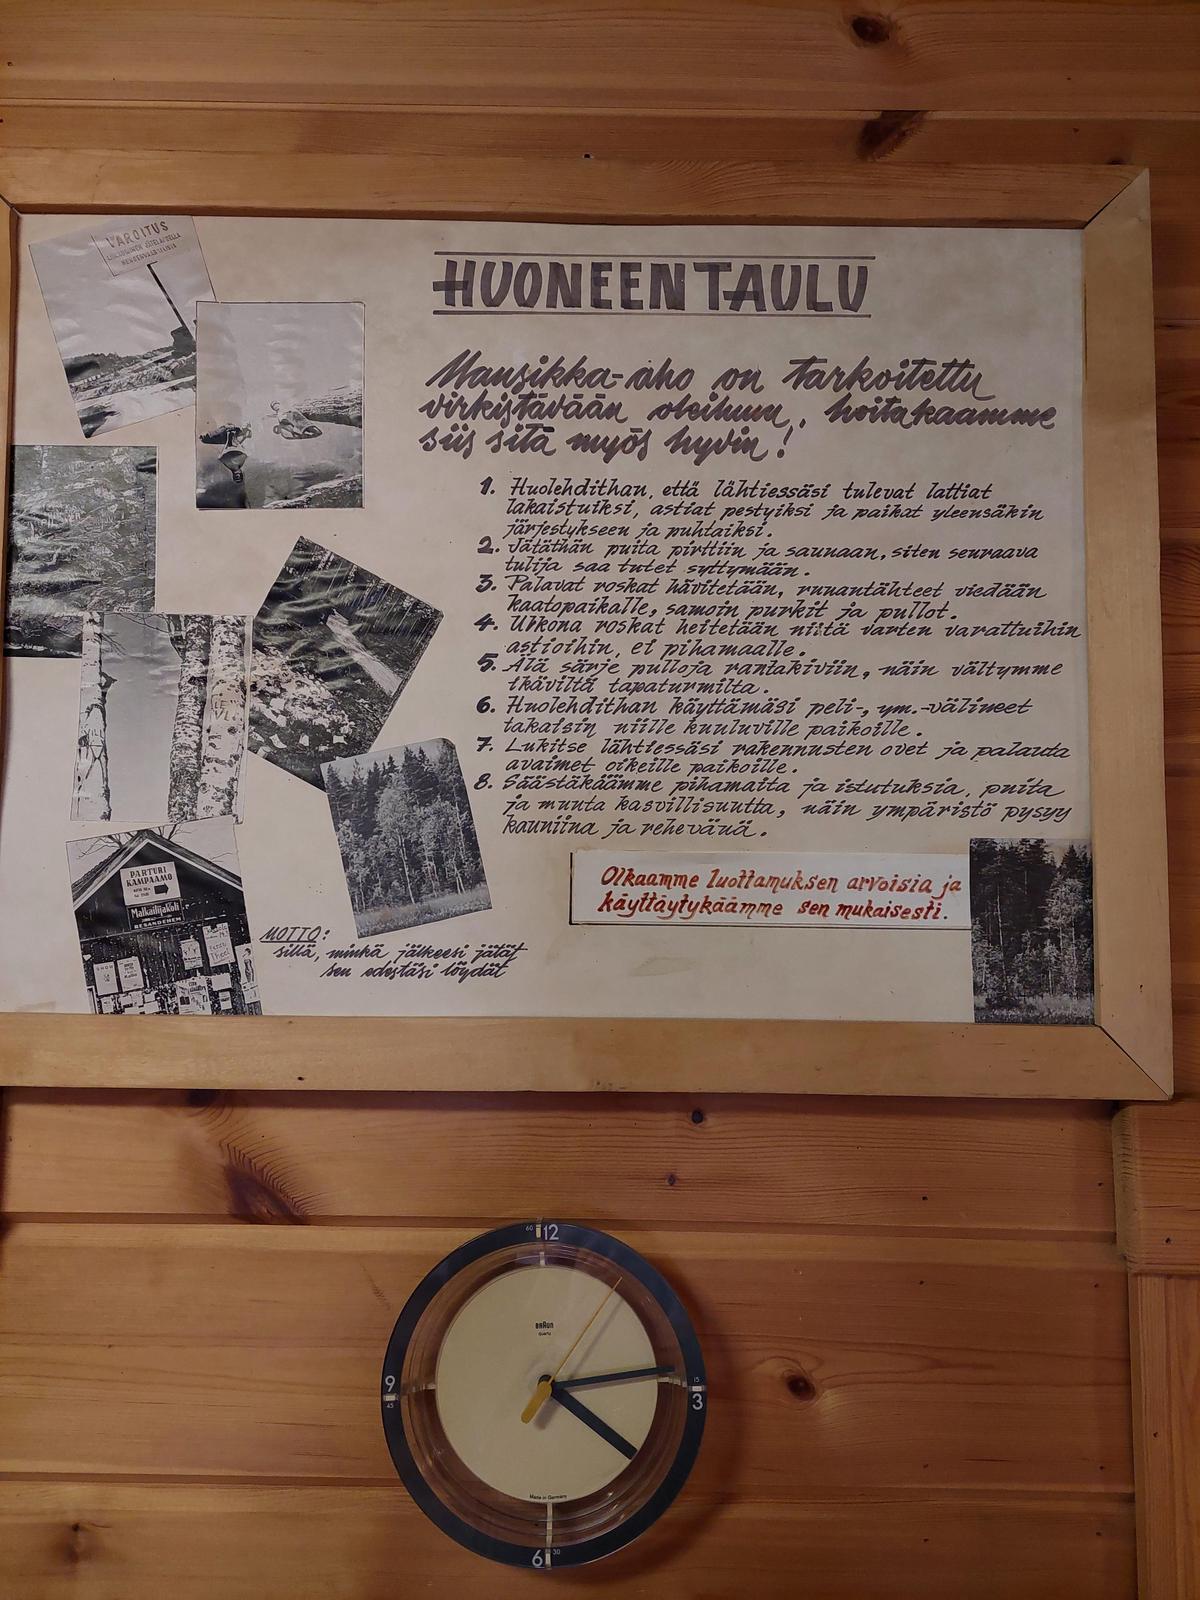 VAROITUS
HUONEENTAULU
Mansikka-aho on tarkoitettu
virkistävään oleiluun, hoitakaamme
siis sitä myös hyvin!
1. Huolehdithan, että lähtiessäsi tulevat lattiat
lakaistuiksi, astiat pestyiksi ja paikat yleensäkin
järjestykseen ja puhtaiksi.
2. Jätäthän puita pirttiin ja saunaan, siten seuraava
tulija saa tulet syttymään.
3. Palavat roskat hävitetään, ruuantähteet viedään
kaatopaikalle, samoin purkit ja pullot.
4. Ulkona roskat heitetään niitä varten varattuihin
astioihin, ei pihamaalle.
5. Älä särje pulloja rantakiviin, näin vältymme
ikäviltä tapaturmilta.
6. Huolehdithan käyttämäsi peli-, ym.-välineet
takaisin niille kuuluville paikoille.
7. Lukitse lähtiessäsi rakennusten ovet ja palauta
avaimet oikeille paikoille.
8. Säästäkäämme pihamaita ja istutuksia, puita
ja muuta kasvillisuutta, näin ympäristö pysyy
kauniina ja rehevänä.
Olkaamme luottamuksen arvoisia ja
käyttäytykäämme sen mukaisesti.
MOTTO:
sillä, minkä jälkeesi jätät
sen edestäsi löydät
PARTURI
KAMPAAMO
Matkailijakoti
RESANDEHEM
60 12
BRAUN
quartz
15
3
9
45
Made in Germany
6 30